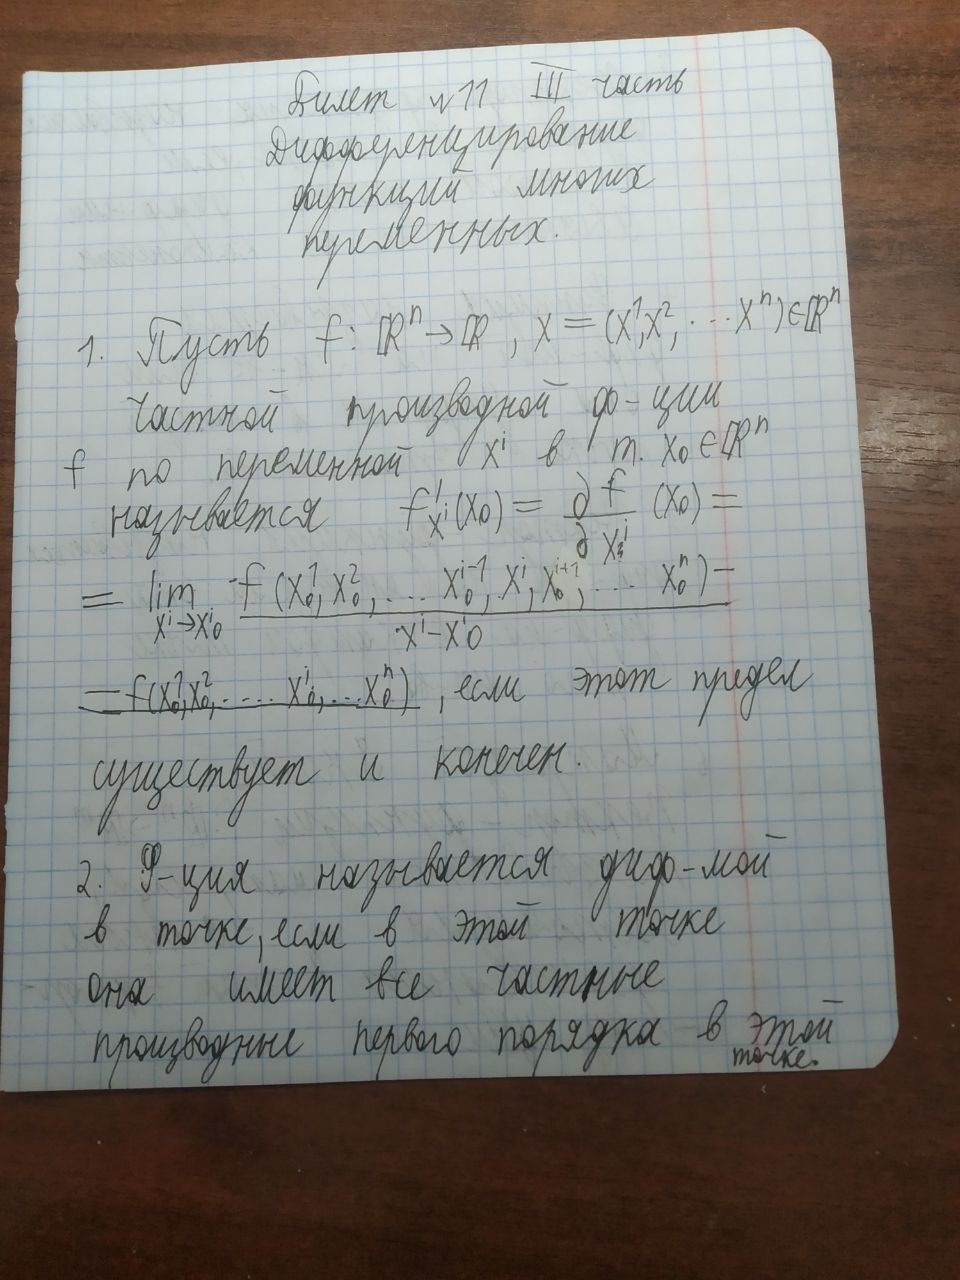 Билет №11 III часть
Дифференцирование
функций многих
переменных.
1. Пусть f: ℝⁿ → ℝ, x = (x¹, x², ... xⁿ) ∈ ℝⁿ
Частной производной ф-ции
f по переменной xⁱ в т. x₀ ∈ ℝⁿ
называется f'_{xⁱ}(x₀) = ∂f/∂xⁱ (x₀) =
= lim_{xⁱ→xⁱ₀} f(x₀¹, x₀², ... x₀ⁱ⁻¹, xⁱ, x₀ⁱ⁺¹, ... x₀ⁿ) −
xⁱ − xⁱ₀
− f(x₀¹, x₀², ... xⁱ₀, ... x₀ⁿ), если этот предел
существует и конечен.
2. Ф-ция называется диф-мой
в точке, если в этой точке
она имеет все частные
производные первого порядка в этой
точке.